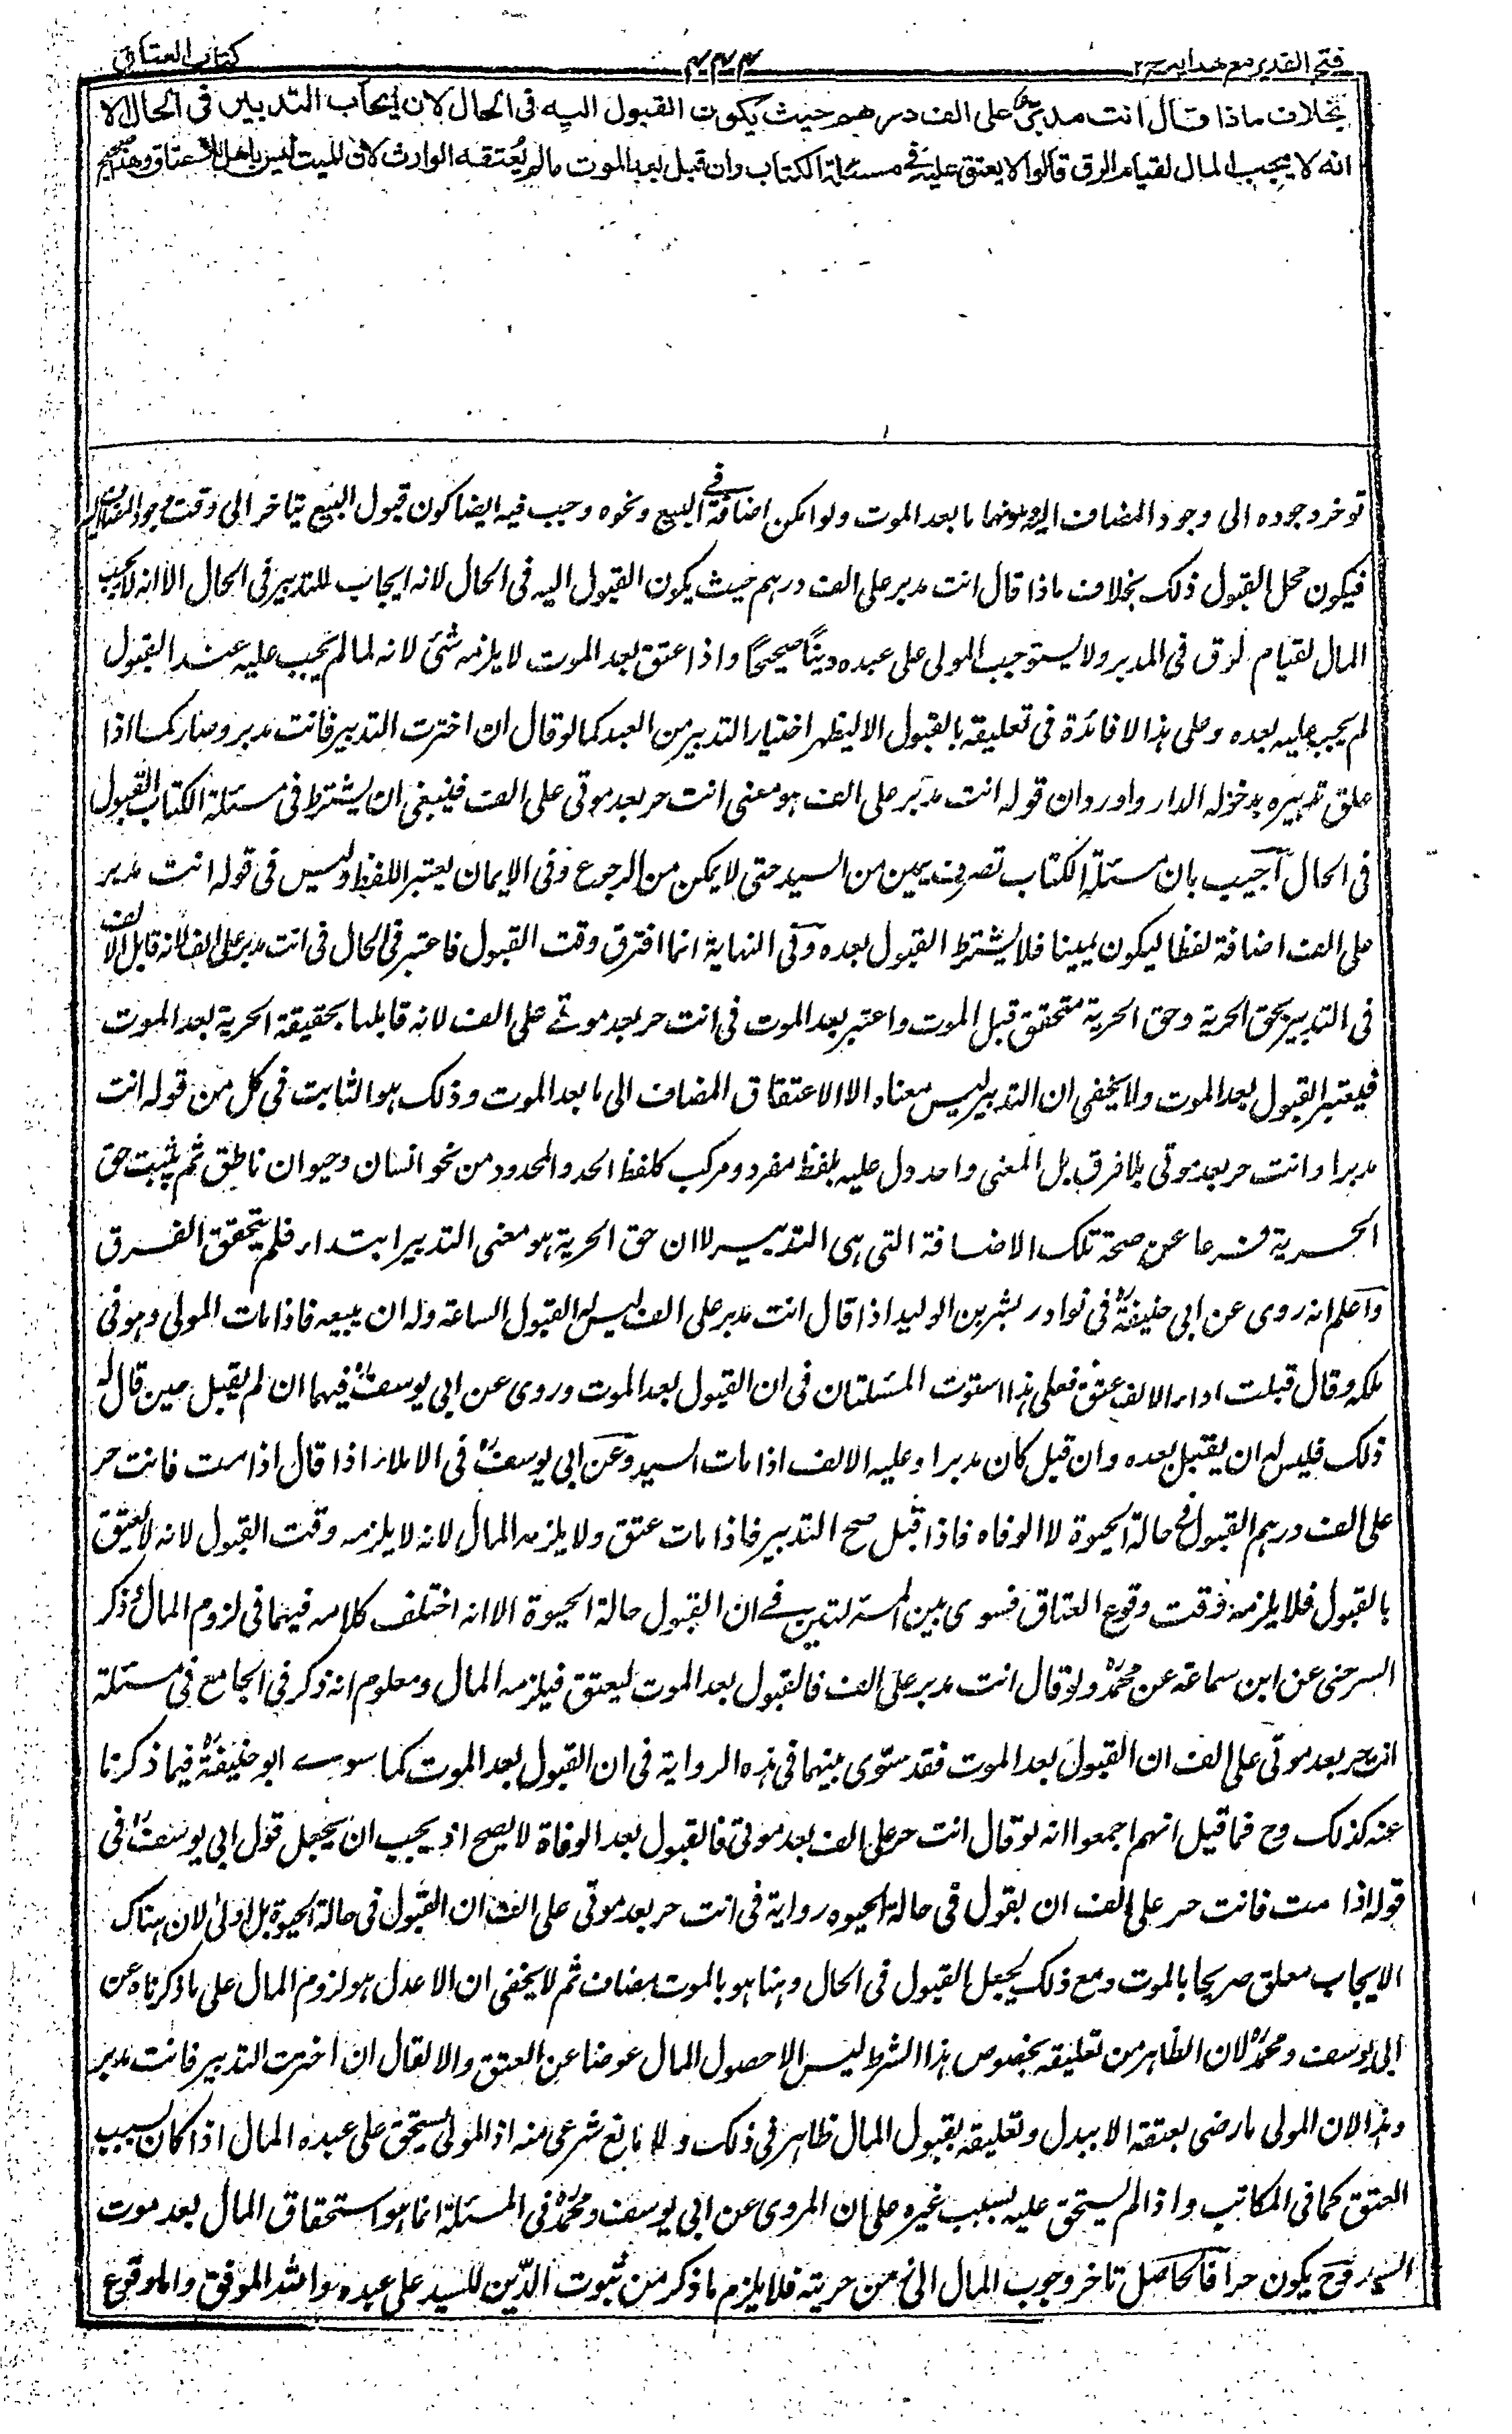 فتح القدير مع هدايه ج٢
٤٤٤
كتاب العتاق
بخلاف ما اذا قال انت مدبر على الف درهم حيث يكون القبول اليه فى الحال لان ايجاب التدبير فى الحال الا
انه لا يجب المال لقيام الرق قالوا لا يعتق عليه فى مسئلة الكتاب وان قبل بعد الموت ما لم يعتقه الوارث لان الميت ليس باهل للاعتاق وهذا صحيح
توخر وجوده الى وجود المضاف اليه وهونها ما بعد الموت ولو امكن اضافة فى البيع ونحوه وجب فيه ايضا كون قبول البيع يتاخر الى وقت وجود المضاف اليه
فيكون محل القبول ذلك بخلاف ما اذا قال انت مدبر على الف درهم حيث يكون القبول اليه فى الحال لانه ايجاب للتدبير فى الحال الا انه لا يجب
المال لقيام لرق فى المدبر ولا يستوجب المولى على عبده دينًا صحيحًا واذا عتق بعد الموت لا يلزمه شئ لانه لما لم يجب عليه عند القبول
لم يجب عليه بعده وعلى هذا لا فائدة فى تعليقه بالقبول الا ليظهر اختيار التدبير من العبد كما لو قال ان اخترت التدبير فانت مدبر وصار كما اذا
علق تدبيره بدخوله الدار واورد ان قوله انت مدبر على الف هو معنى انت حر بعد موتى على الف فينبغى ان يشترط فى مسئلة الكتاب القبول
فى الحال اجيب بان مسئلة الكتاب تصرف يمين من السيد حتى لا يمكن من الرجوع وفى الايمان يعتبر اللفظ وليس فى قوله انت مدبر
على الف اضافة لفظا ليكون يمينا فلا يشترط القبول بعده وفى النهاية انما افترق وقت القبول فاعتبر فى الحال فى انت مدبر على الف لانه قابل الالف
فى التدبير بحق الحرية وحق الحرية متحقق قبل الموت واعتبر بعد الموت فى انت حر بعد موتى على الف لانه قابلها بحقيقة الحرية بعد الموت
فيعتبر القبول بعد الموت ولا يخفى ان التدبير ليس معناه الا الاعتقاق المضاف الى ما بعد الموت وذلك هو الثابت فى كل من قوله انت
مدبر او انت حر بعد موتى بلا فرق بل المعنى واحد دل عليه بلفظ مفرد ومركب كلفظ الحد والمحدود من نحو انسان وحيوان ناطق ثم يثبت حق
الحرية شرعا عن صحة تلك الاضافة التى هى التدبير لا ان حق الحرية هو معنى التدبير ابتداء فلم يتحقق الفرق
واعلم انه روى عن ابى حنيفة رح فى نوادر بشر بن الوليد اذا قال انت مدبر على الف ليس له القبول الساعة وله ان يبيعه فاذا مات المولى وهو فى
ملكه وقال قبلت اداء الالف عتق فعلى هذا استوت المسئلتان فى ان القبول بعد الموت وروى عن ابى يوسف رح فيهما ان لم يقبل حين قال له
ذلك فليس له ان يقبل بعده وان قبل كان مدبرا وعليه الالف اذا مات السيد وعن ابى يوسف رح فى الاملاء اذا قال اذا مت فانت حر
على الف درهم القبول فى حالة الحيوة لا الوفاه فاذا قبل صح التدبير فاذا مات عتق ولا يلزمه المال لانه لا يلزمه وقت القبول لانه لا يعتق
بالقبول فلا يلزمه وقت وقوع العتاق فسوى بين المسئلتين فى ان القبول حالة الحيوة الا انه اختلف كلامه فيهما فى لزوم المال وذكر
السرخى عن ابن سماعة عن محمد رح ولو قال انت مدبر على الف فالقبول بعد الموت ليعتق فيلزمه المال ومعلوم انه ذكر فى الجامع فى مسئلة
انت حر بعد موتى على الف ان القبول بعد الموت فقد سوّى بينهما فى هذه الرواية فى ان القبول بعد الموت كما سوى ابو حنيفة رح فيما ذكرنا
عنه كذلك وح فما قيل انهم اجمعوا انه لو قال انت حر على الف بعد موتى فالقبول بعد الوفاة لا يصح اذ يجب ان يجعل قول ابى يوسف رح فى
قوله اذا مت فانت حر على الف ان يقول فى حالة الحيوه رواية فى انت حر بعد موتى على الف ان القبول فى حالة الحيوة بل اولى لان هناك
الايجاب معلق صريحا بالموت ومع ذلك يجعل القبول فى الحال وهنا هو بالموت مضاف ثم لا يخفى ان الاعدل هو لزوم المال على ما ذكرناه عن
ابى يوسف ومحمد رح لان الظاهر من تعليقه بخصوص هذا الشرط ليس الا حصول المال عوضا عن العتق والا لقال ان اخترت التدبير فانت مدبر
وهذا لان المولى ما رضى بعتقه الا ببدل وتعليقه بقبول المال ظاهر فى ذلك ولا مانع شرعى منه اذ المولى يستحق على عبده المال اذا كان بسبب
العتق كما فى المكاتب واذا لم يستحق عليه بسبب غيره على ان المروى عن ابى يوسف ومحمد رح فى المسئلة انما هو استحقاق المال بعد موت
السيد وح يكون حرا فالحاصل تاخر وجوب المال الى زمن حريته فلا يلزم ما ذكر من ثبوت الدين للسيد على عبده والله الموفق واما وقوع